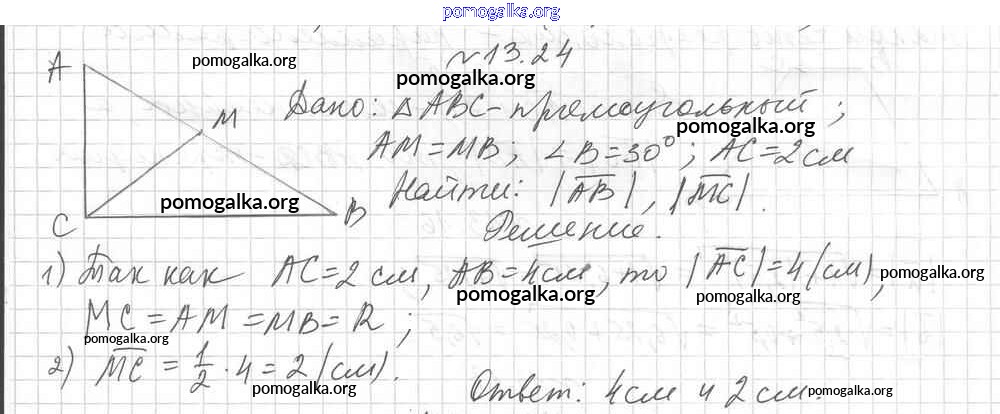 pomogalka.org
A
pomogalka.org
№ 13.24
pomogalka.org
M
Дано: △ABC - прямоугольный;
pomogalka.org
AM = MB; ∠B = 30°; AC = 2 см
Найти: |AB|, |MC|.
pomogalka.org
C
B
Решение.
1) Так как AC = 2 см, AB = 4 см, то |AC| = 4 (см),
pomogalka.org
pomogalka.org
pomogalka.org
MC = AM = MB = R;
pomogalka.org
2) MC = 1/2 · 4 = 2 (см).
pomogalka.org
Ответ: 4 см и 2 см.
pomogalka.org